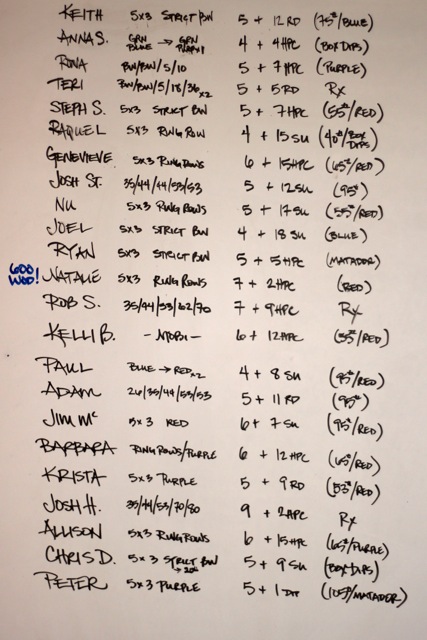 KEITH 5x3 STRICT BW 5 + 12 RD (75#/BLUE)
ANNA S. GRN BLUE → GRN 4 + 4 HPC (BOX DIPS)
RONA BW/BW/5/10 5 + 7 HPC (PURPLE)
TERI BW/BW/5/18/36 x2 5 + 5 RD Rx
STEPH S. 5x3 STRICT BW 5 + 7 HPC (55#/RED)
RAQUEL 5x3 RING ROW 4 + 15 SU (40#/BOX DIPS)
GENEVIEVE 5x3 RING ROWS 6 + 15 HPC (65#/RED)
JOSH ST. 35/44/44/53/53 5 + 12 SU (95#)
NU 5x3 RING ROWS 5 + 17 SU (55#/RED)
JOEL 5x3 STRICT BW 4 + 18 SU (BLUE)
RYAN 5x3 STRICT BW 5 + 5 HPC (MATADOR)
600 WOD! NATALIE 5x3 RING ROWS 7 + 2 HPC (RED)
ROB S. 35/44/53/62/70 7 + 9 HPC Rx
KELLI B. 6 + 12 HPC (35#/RED)
PAUL BLUE → RED x2 4 + 8 SU (95#/RED)
ADAM 26/35/44/53/53 5 + 11 RD (95#)
JIM Mc 5x3 RED 6 + 7 SU (95#/RED)
BARBARA RING ROWS/PURPLE 6 + 12 HPC (65#/RED)
KRISTA 5x3 PURPLE 5 + 9 RD (53#/RED)
JOSH H. 35/44/53/70/80 9 + 2 HPC Rx
ALLISON 5x3 RING ROWS 6 + 15 HPC (65#/PURPLE)
CHRIS D. 5x3 STRICT BW 5 + 9 SU (BOX DIPS)
PETER 5x3 PURPLE 5 + 1 DIP (105#/MATADOR)